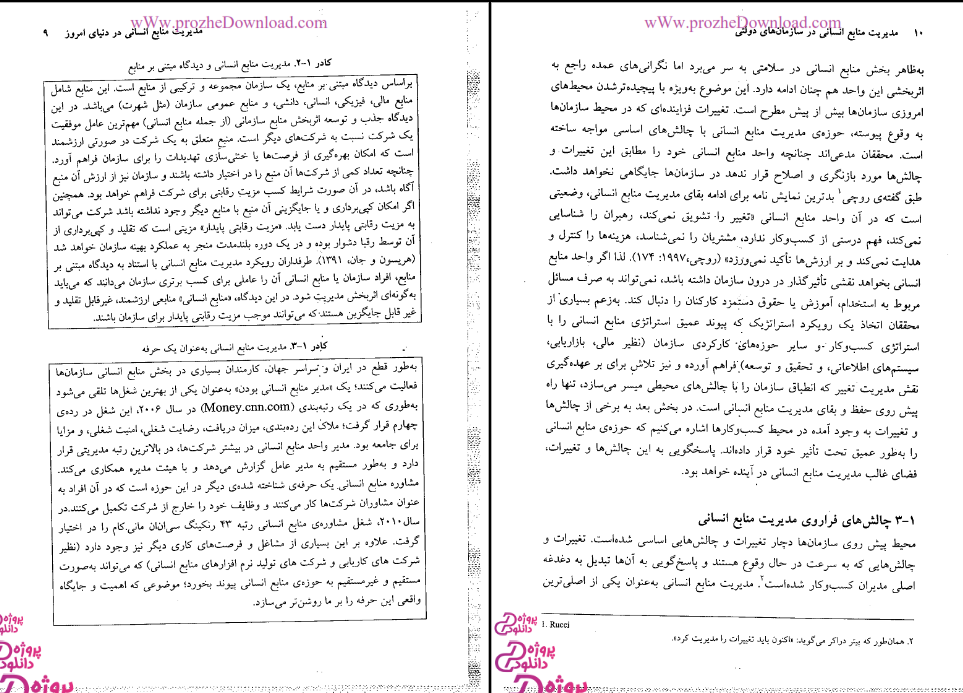 www.prozheDownload.com
مدیریت منابع انسانی در دنیای امروز ۹
کادر ۱-۲. مدیریت منابع انسانی و دیدگاه مبتنی بر منابع
براساس دیدگاه مبتنی بر منابع، یک سازمان مجموعه و ترکیبی از منابع است. این منابع شامل
منابع مالی، فیزیکی، انسانی، دانشی، و منابع عمومی سازمان (مثل شهرت) می‌باشد. در این
دیدگاه جذب و توسعه اثربخش منابع سازمانی (از جمله منابع انسانی) مهم‌ترین عامل موفقیت
یک شرکت نسبت به شرکت‌های دیگر است. منبع متعلق به یک شرکت در صورتی ارزشمند
است که امکان بهره‌گیری از فرصت‌ها یا خنثی‌سازی تهدیدات را برای سازمان فراهم آورد.
چنانچه تعداد کمی از شرکت‌ها آن منبع را در اختیار داشته باشند و سازمان نیز از ارزش آن منبع
آگاه باشد، در آن صورت شرایط کسب مزیت رقابتی برای شرکت فراهم خواهد بود. همچنین
اگر امکان کپی‌برداری و یا جایگزینی آن منبع با منابع دیگر وجود نداشته باشد شرکت می‌تواند
به مزیت رقابتی پایدار دست یابد. «مزیت رقابتی پایدار» مزیتی است که تقلید و کپی‌برداری از
آن توسط رقبا دشوار بوده و در یک دوره بلندمدت منجر به عملکرد بهینه سازمان خواهد شد
(هریسون و جان، ۱۳۹۱). طرفداران رویکرد مدیریت منابع انسانی با استناد به دیدگاه مبتنی بر
منابع، افراد سازمان یا منابع انسانی آن را عاملی برای کسب برتری سازمان می‌دانند که می‌باید
به‌گونه‌ای اثربخش مدیریت شود. در این دیدگاه، «منابع انسانی» منابعی ارزشمند، غیرقابل تقلید و
غیر قابل جایگزین هستند که می‌توانند موجب مزیت رقابتی پایدار برای سازمان باشند.
کادر ۱-۳. مدیریت منابع انسانی به‌عنوان یک حرفه
به‌طور قطع در ایران و سراسر جهان، کارمندان بسیاری در بخش منابع انسانی سازمان‌ها
فعالیت می‌کنند؛ یک «مدیر منابع انسانی بودن» به‌عنوان یکی از بهترین شغل‌ها تلقی می‌شود
به‌طوری که در یک رتبه‌بندی (Money.cnn.com) در سال ۲۰۰۶، این شغل در رده‌ی
چهارم قرار گرفت؛ ملاک این رده‌بندی، میزان دریافت، رضایت شغلی، امنیت شغلی، و مزایا
برای جامعه بود. مدیر واحد منابع انسانی در بیشتر شرکت‌ها، در بالاترین رتبه مدیریتی قرار
دارد و به‌طور مستقیم به مدیر عامل گزارش می‌دهد و با هیئت مدیره همکاری می‌کند.
مشاوره منابع انسانی یک حرفه‌ی شناخته شده‌ی دیگر در این حوزه است که در آن افراد به
عنوان مشاوران شرکت‌ها کار می‌کنند و وظایف خود را خارج از شرکت تکمیل می‌کنند.در
سال۲۰۱۰، شغل مشاوره‌ی منابع انسانی رتبه ۴۳ رنکینگ سی‌ان‌ان مانی.کام را در اختیار
گرفت. علاوه بر این بسیاری از مشاغل و فرصت‌های کاری دیگر نیز وجود دارد (نظیر
شرکت های کاریابی و شرکت های تولید نرم افزارهای منابع انسانی) که می‌تواند به‌صورت
مستقیم و غیرمستقیم به حوزه‌ی منابع انسانی پیوند بخورد؛ موضوعی که اهمیت و جایگاه
واقعی این حرفه را بر ما روشن‌تر می‌سازد.
پروژه
دانلود
پروژه
دانلود
پروژه
www.prozheDownload.com
۱۰ مدیریت منابع انسانی در سازمان‌های دولتی
به‌ظاهر بخش منابع انسانی در سلامتی به سر می‌برد اما نگرانی‌های عمده راجع به
اثربخشی این واحد هم چنان ادامه دارد. این موضوع به‌ویژه با پیچیده‌ترشدن محیط‌های
امروزی سازمان‌ها بیش از پیش مطرح است. تغییرات فزاینده‌ای که در محیط سازمان‌ها
به وقوع پیوسته، حوزه‌ی مدیریت منابع انسانی را با چالش‌های اساسی مواجه ساخته
است. محققان مدعی‌اند چنانچه واحد منابع انسانی خود را مطابق این تغییرات و
چالش‌ها مورد بازنگری و اصلاح قرار ندهد در سازمان‌ها جایگاهی نخواهد داشت.
طبق گفته‌ی روچی۱ بدترین نمایش نامه برای ادامه بقای مدیریت منابع انسانی، وضعیتی
است که در آن واحد منابع انسانی «تغییر را تشویق نمی‌کند، رهبران را شناسایی
نمی‌کند، فهم درستی از کسب‌وکار ندارد، مشتریان را نمی‌شناسد، هزینه‌ها را کنترل و
هدایت نمی‌کند و بر ارزش‌ها تأکید نمی‌ورزد» (روچی،۱۹۹۷: ۱۷۴). لذا اگر واحد منابع
انسانی بخواهد نقشی تأثیرگذار در درون سازمان داشته باشد، نمی‌تواند به صرف مسائل
مربوط به استخدام، آموزش یا حقوق دستمزد کارکنان را دنبال کند. به‌زعم بسیاری از
محققان اتخاذ یک رویکرد استراتژیک که پیوند عمیق استراتژی منابع انسانی را با
استراتژی کسب‌وکار و سایر حوزه‌های کارکردی سازمان (نظیر مالی، بازاریابی،
سیستم‌های اطلاعاتی، و تحقیق و توسعه) فراهم آورده و نیز تلاش برای بر عهده‌گیری
نقش مدیریت تغییر که انطباق سازمان را با چالش‌های محیطی میسر می‌سازد، تنها راه
پیش روی حفظ و بقای مدیریت منابع انسانی است. در بخش بعد به برخی از چالش‌ها
و تغییرات به وجود آمده در محیط کسب‌وکارها اشاره می‌کنیم که حوزه‌ی منابع انسانی
را به‌طور عمیق تحت تأثیر خود قرار داده‌اند. پاسخگویی به این چالش‌ها و تغییرات،
فضای غالب مدیریت منابع انسانی در آینده خواهد بود.
۱-۳ چالش‌های فراروی مدیریت منابع انسانی
محیط پیش روی سازمان‌ها دچار تغییرات و چالش‌هایی اساسی شده‌است. تغییرات و
چالش‌هایی که به سرعت در حال وقوع هستند و پاسخ‌گویی به آن‌ها تبدیل به دغدغه
اصلی مدیران کسب‌وکار شده‌است۲. مدیریت منابع انسانی به‌عنوان یکی از اصلی‌ترین
1. Rucci
۲. همان‌طور که پیتر دراکر می‌گوید: «اکنون باید تغییرات را مدیریت کرد».
پروژه
دانلود
پروژه
دانلود
پروژه